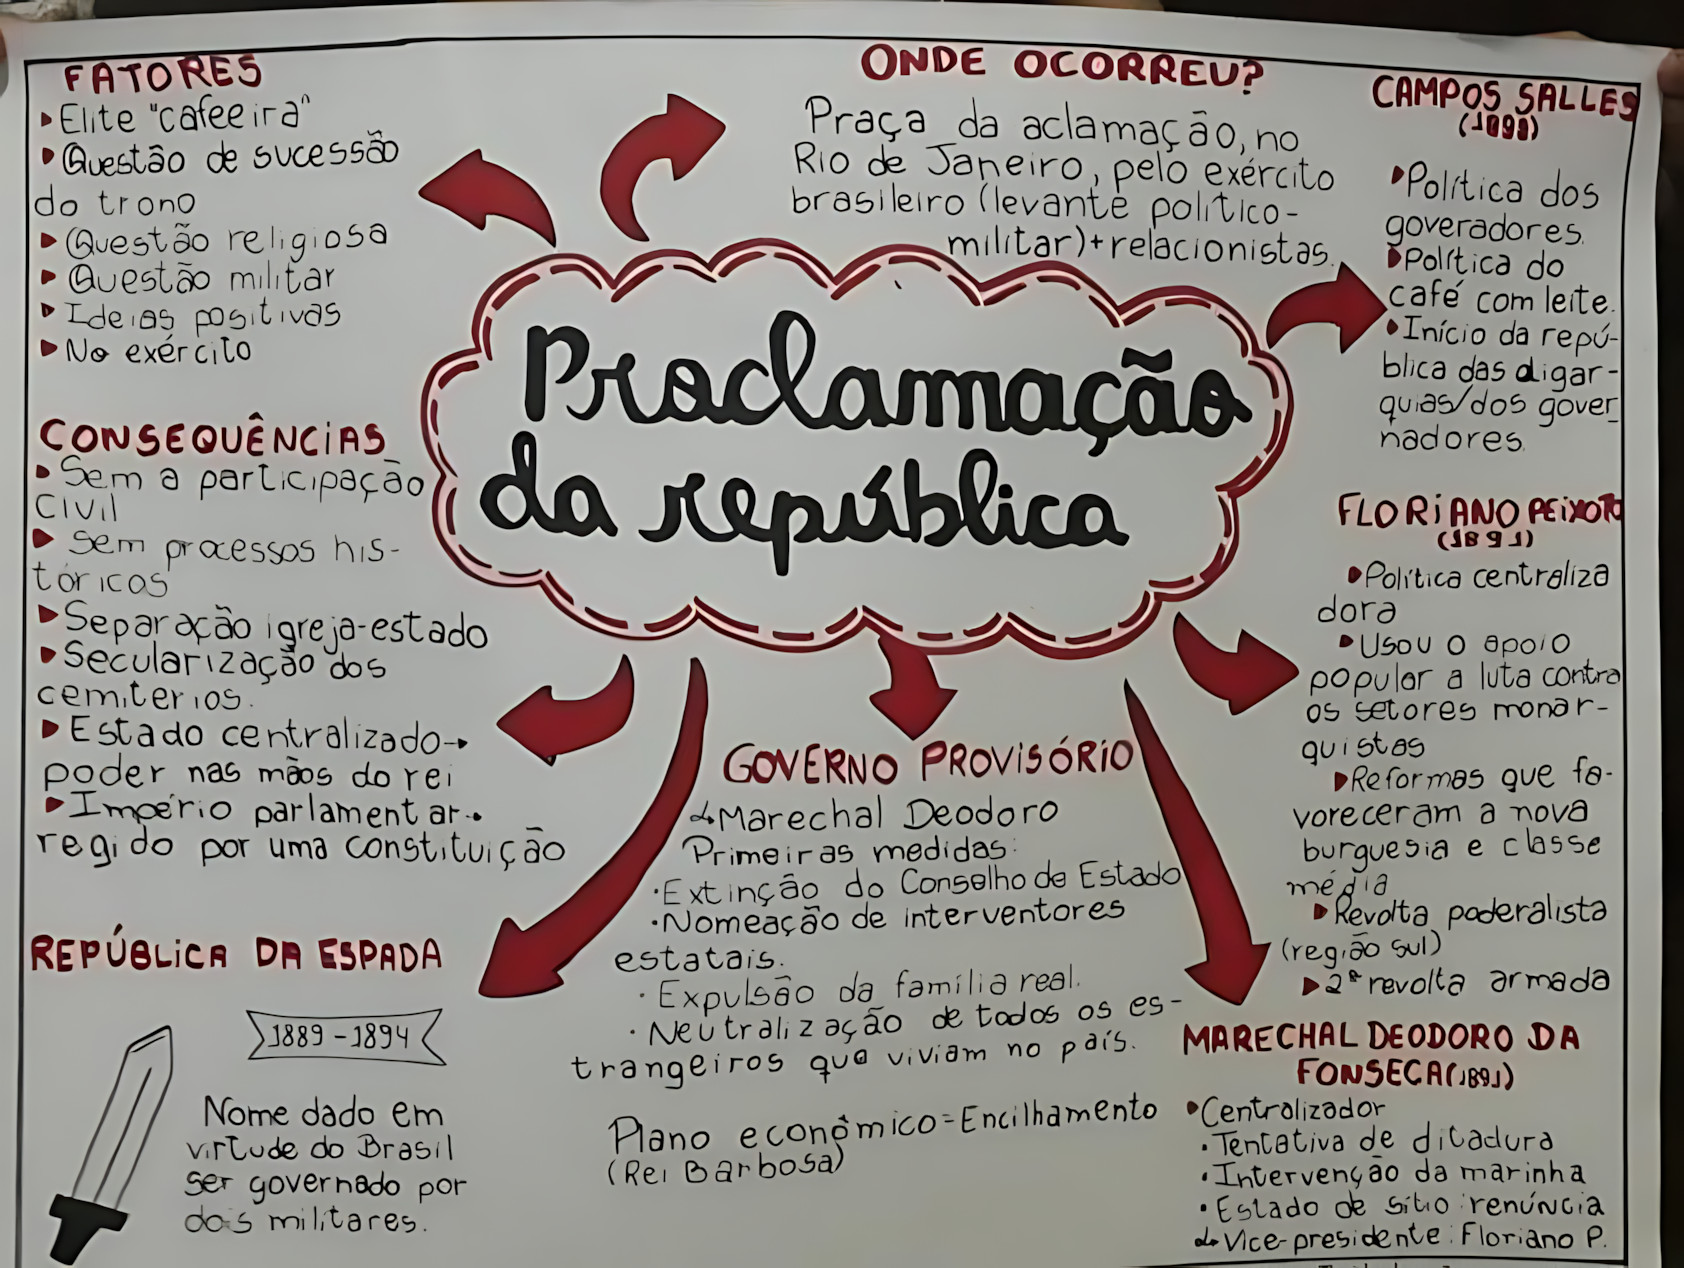 FATORES
Elite "cafeeira"
Questão de sucessão
do trono
Questão religiosa
Questão militar
Ideias positivas
No exército
ONDE OCORREU?
Praça da aclamação, no
Rio de Janeiro, pelo exército
brasileiro (levante político-
militar)+relacionistas.
CAMPOS SALLES
(1898)
Política dos
goveradores.
Política do
café com leite.
Início da repú-
blica das oligar-
quias/dos gover_
nadores.
Proclamação
da república
CONSEQUÊNCIAS
Sem a participação
Civil
Sem processos his-
tóricos
Separação igreja-estado
Secularização dos
cemiterios.
Estado centralizado→
poder nas mãos do rei
Império parlamentar→
regido por uma constituição
FLORIANO PEIXOTO
(1891)
Política centraliza
dora
Usou o apoio
popular a luta contra
os setores monar-
quistas
Reformas que fa-
voreceram a nova
burguesia e classe
média
Revolta poderalista
(região sul)
2ª revolta armada
GOVERNO PROVISÓRIO
↳Marechal Deodoro
Primeiras medidas:
·Extinção do Conselho de Estado
·Nomeação de interventores
estatais.
·Expulsão da família real.
·Neutralização de todos os es-
trangeiros que viviam no país.
Plano econômico=Encilhamento
(Rei Barbosa)
REPÚBLICA DA ESPADA
1889-1894
Nome dado em
virtude do Brasil
ser governado por
dois militares.
MARECHAL DEODORO DA
FONSECA(1891)
Centralizador
·Tentativa de ditadura
·Intervenção da marinha
·Estado de sítio:renúncia
↳Vice-presidente:Floriano P.